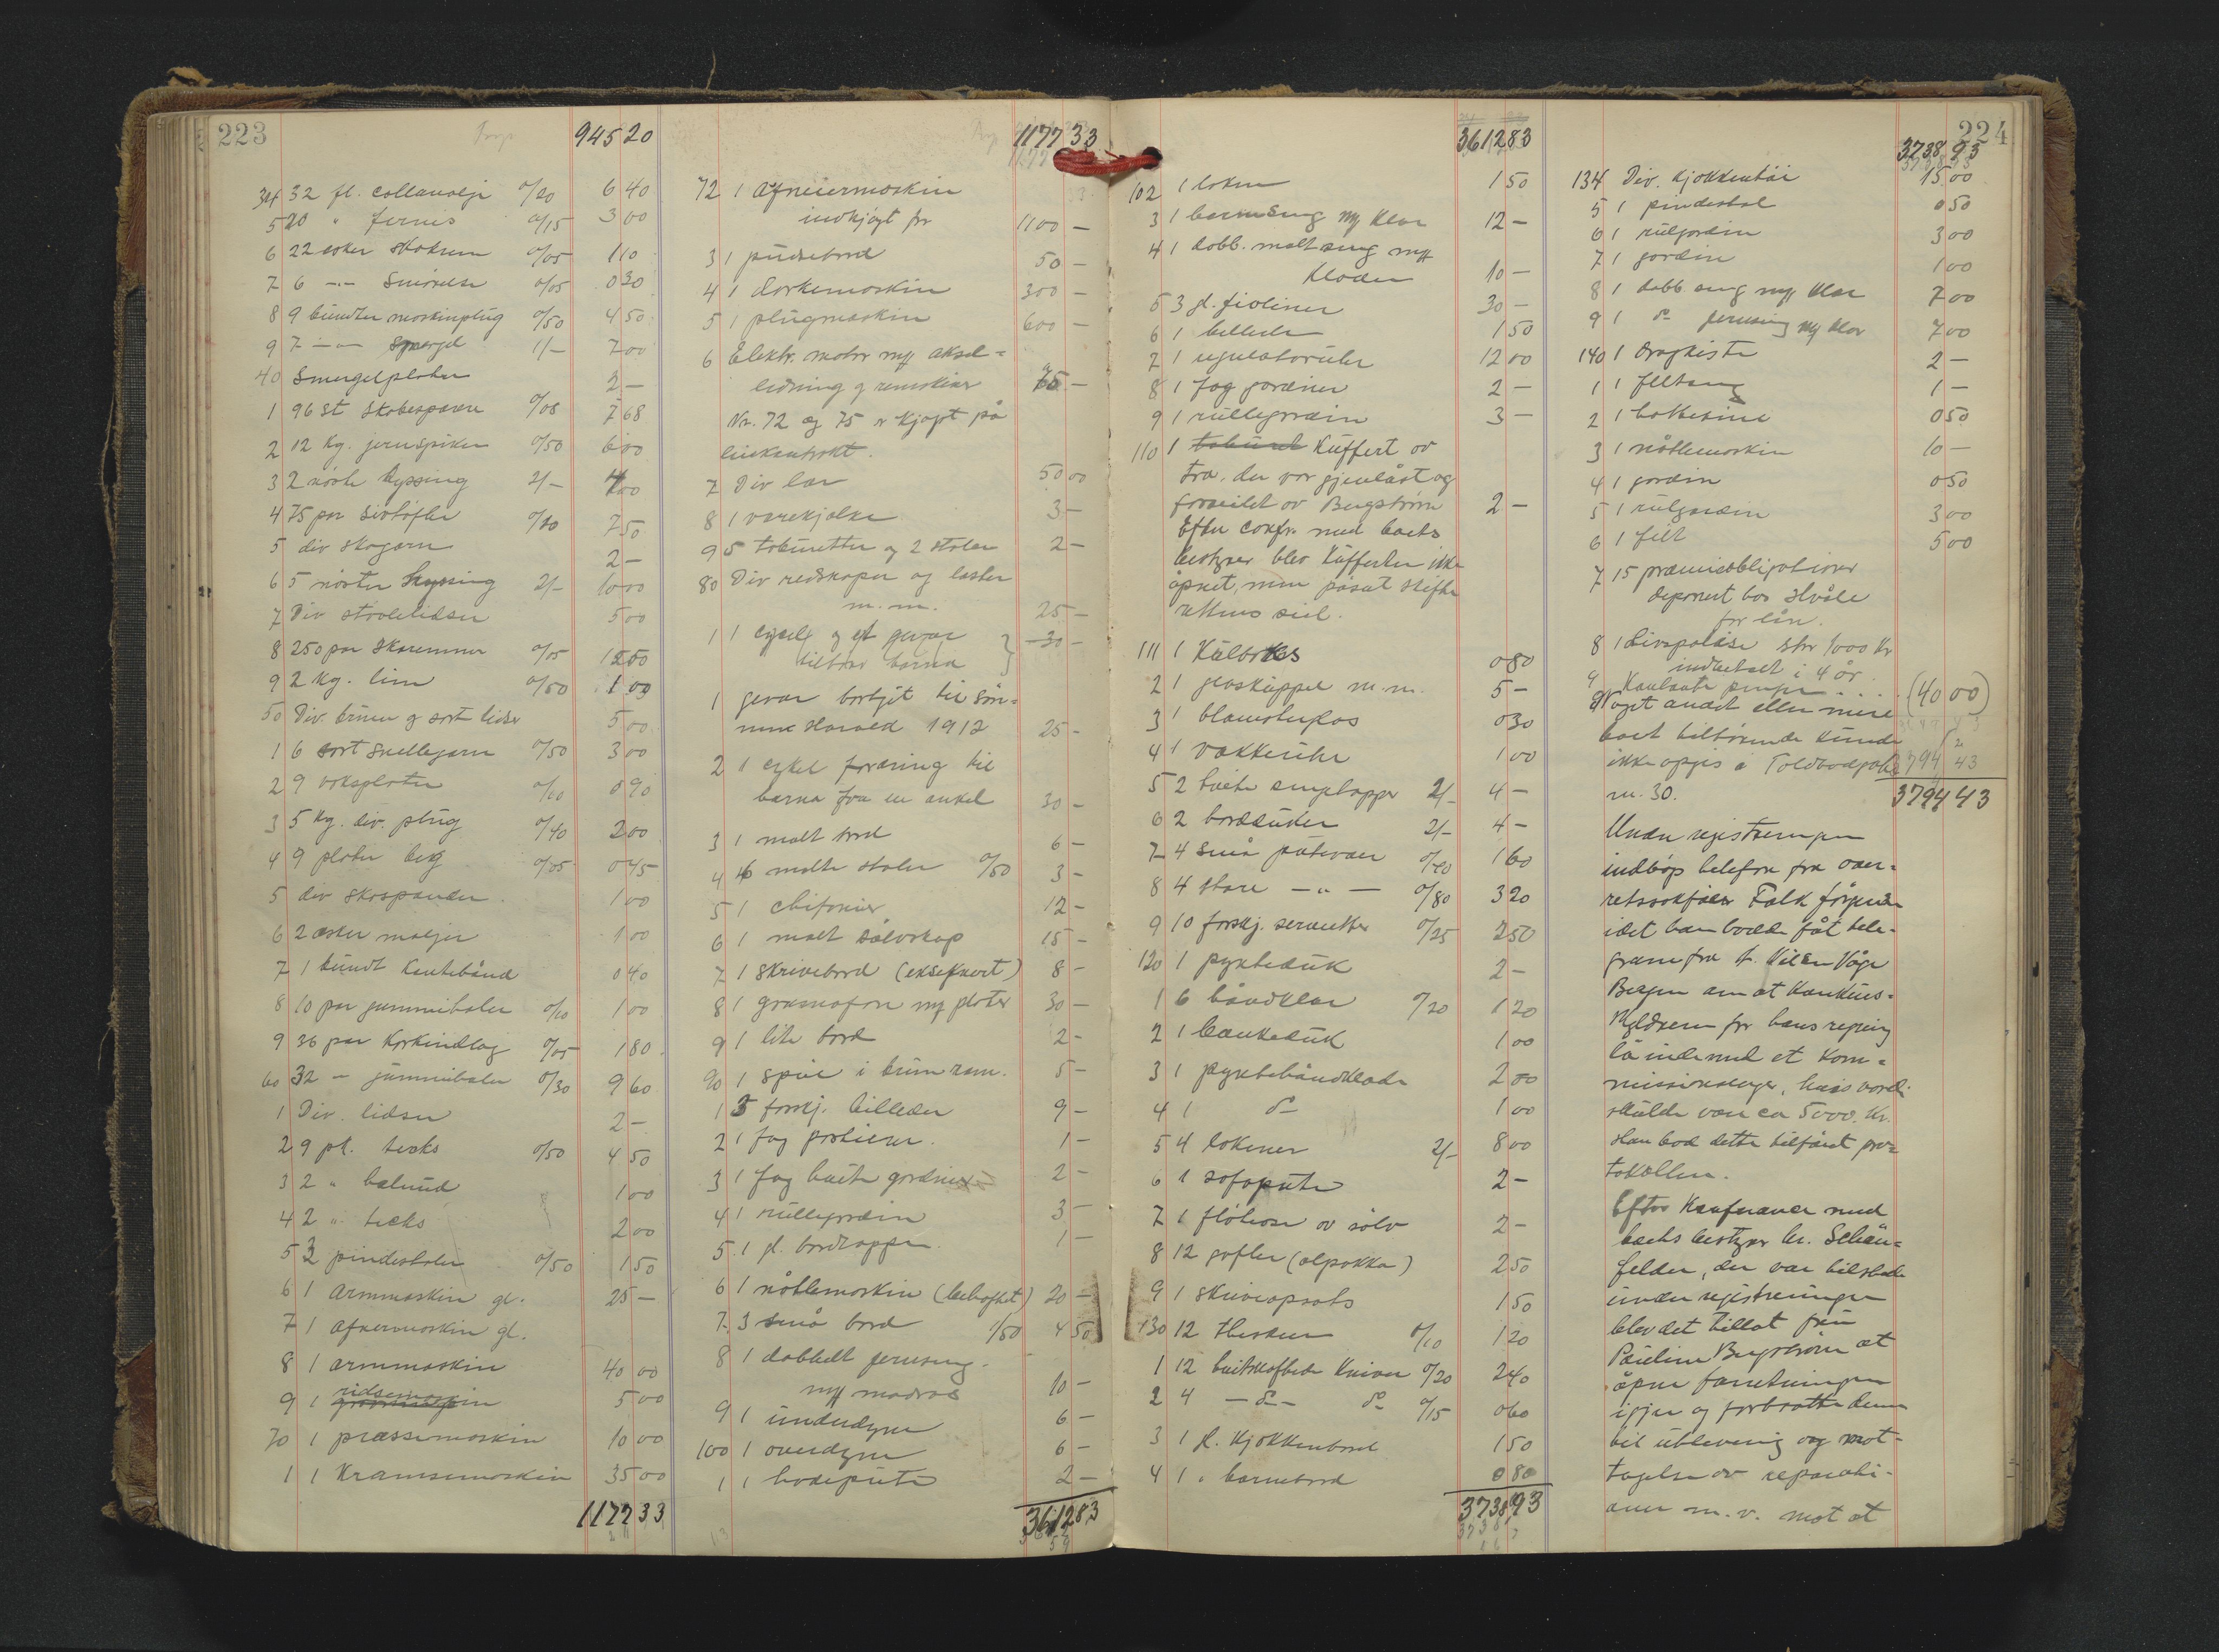 223
945 20
34 32 fl. 0/20 6 40
5 20 " fernis 0/15 3 00
6 22 esker 0/05 1 10
7 6 -"- 0/05 0 30
8 9 bundter maskinplug 0/50 4 50
9 7 -"- 1/- 7 00
40 Smergelplater 2 -
1 96 st 0/08 7 68
2 12 kg. jernspiker 0/50 6 00
3 2 nöste hyssing 2/- 4 00
4 75 par 0/10 7 50
5 div skogarn 2 -
6 5 nöster hyssing 2/- 10 00
7 Div 5 00
8 250 par skoremmer 0/05 12 50
9 2 kg. lim 0/50 1 00
50 Div. brune g sort lidser 5 00
1 6 sort snellegarn 0/50 3 00
2 9 voksplater 0/10 0 90
3 5 kg. div. plug 0/40 2 00
4 9 plater beg 0/05 0 45
5 div skospænder 1 00
6 2 æsker maljer 1 00
7 1 bundt kantebånd 0 40
8 10 par gummihæler 0/10 1 00
9 36 par korkindlæg 0/05 1 80
60 32 - gummihæler 0/30 9 60
1 Div. lidser 2 -
2 9 pk. tecks 0/50 4 50
3 2 " 1 00
4 2 " tecks 2 00
5 3 pindestoler 0/50 1 50
6 1 armmaskin gl. 25 -
7 1 gl.
8 1 armmaskin 40 00
9 1 ridsemaskin 5 00
70 1 pressemaskin 10 00
1 1 Kransemaskin 35 00
1177 33
1177 33
72 1 Afneiermaskin
indkjøpt for 1100 -
3 1 pudsebord 50 -
4 1 maskin 300 -
5 1 plugmaskin 600 -
6 Elektr. motor m/ aksel-
ledning g remskiver 75 -
Nr. 72 og 75 er kjøpt på
leiekontrakt.
7 Div lær 50 00
8 1 varekjelke 3 -
9 5 taburetter og 2 stoler 2 -
80 Div redskaper og læster
m. m. 25 -
1 1 cycel g et gevær
tilhør barna 30 -
1 gevær bortgit til søn-
nen Harald 1912 25 -
2 1 cykel foræring til
barna fra en onkel 30 -
3 1 malt bord 6 -
4 6 malte stoler 0/50 3 -
5 1 chifonier 12 -
6 1 malt sølvskap 15 -
7 1 skrivebord (eksekvert) 8 -
8 1 gramofon m/ plater 30 -
9 1 lite bord 2 -
90 1 speil i brun ram. 5 -
1 5 forskj. billeder 9 -
2 1 fag portierer 1 -
3 1 fag hvite gardiner 2 -
4 1 rullegardin 3 -
5 1 gl. bordtæppe 1 -
6 1 nåtlemaskin (beheftet) 20 -
7 3 små bord 1/50 4 50
8 1 dobbelt jernseng
m/ madras 10 -
9 1 underdyne 6 -
100 1 overdyne 6 -
1 1 hodepute 2 -
3612 83
224
3612 83
102 1 laken 1 50
3 1 barneseng m/ klær 12 -
4 1 dobb. malt seng m/
klæder 10 -
5 3 gl. fioliner 30 -
6 1 billede 1 50
7 1 regulatoruhr 12 00
8 1 fag gardiner 2 -
9 1 rullegardin 3 -
110 1 Kuffert av
træ, der var gjenlåst og
av Bergström 2 -
Efter confr. med boets
bestyrer blev kufferten ikke
åpnet, men påsat skifte
rettens seil.
111 1 Kulboks 0 80
2 1 glaskuppel m.m. 5 -
3 1 blomsterglas 0 30
4 1 vækkeruhr 1 00
5 2 hvite sengetæpper 2/- 4 -
6 2 bordduker 2/- 4 -
7 4 små putevar 0/40 1 60
8 4 store -"- 0/80 3 20
9 10 forskj. servietter 0/25 2 50
120 1 pynteduk 2 -
1 6 håndklær 0/20 1 20
2 1 1 00
3 1 pyntehåndklæde 2 00
4 1 do 1 00
5 4 lakener 2/- 8 00
6 1 sofapute 2 -
7 1 av sølv 2 -
8 12 gafler (alpakka) 2 50
9 1 skriveopsats 1 50
130 12 theskeer 0/10 1 20
1 12 hvitskaftede kniver 0/20 2 40
2 4 -do- do 0/15 0 60
3 1 gl. kjøkkenbord 1 50
4 1 " barnebord 0 80
3738 93
3738 93
134 Div. kjøkkentøi 15 00
5 1 pindestol 0 50
6 1 rulgardin 3 00
7 1 gardin 1 00
8 1 dobb. seng m/ klær 7 00
9 1 do jernseng m/ klær 7 00
140 1 dragkiste 2 -
1 1 feltseng 1 -
2 1 0 50
3 1 nåtlemaskin 10 -
4 1 gardin 0 50
5 1 rulgardin 3 00
6 1 filt 5 00
7 15 præmieobligationer
deponert hos
for lån.
8 1 Livspolise stor 1000 kr
indbetalt i 4 år.
9 Kontante penger . . . . (40 00)
Noget andet eller mere
boet tilhørende kunde
ikke opgis i Toldbodgate
nr. 30.
3794 43
3794 43
Under registreringen
indløp telefon fra over-
retssakfører Falk
idet han hadde fåt tele-
gram fra f. Våge
Bergen om at konkurs-
for hans regning
lå inde med et kom-
missionslager, hvis værdi
skulde være ca 5000. Kr.
Han bad dette tilført pro-
tokollen.
Efter konferance med
boets bestyrer hr. Schön-
felder, der var tilstede
under registreringen
blev det tillat fru
Pauline Bergström at
åpne forretningen
igjen og fortsætte denne
til utlevering og mot-
tagelse av reparati-
oner m. v. mot at